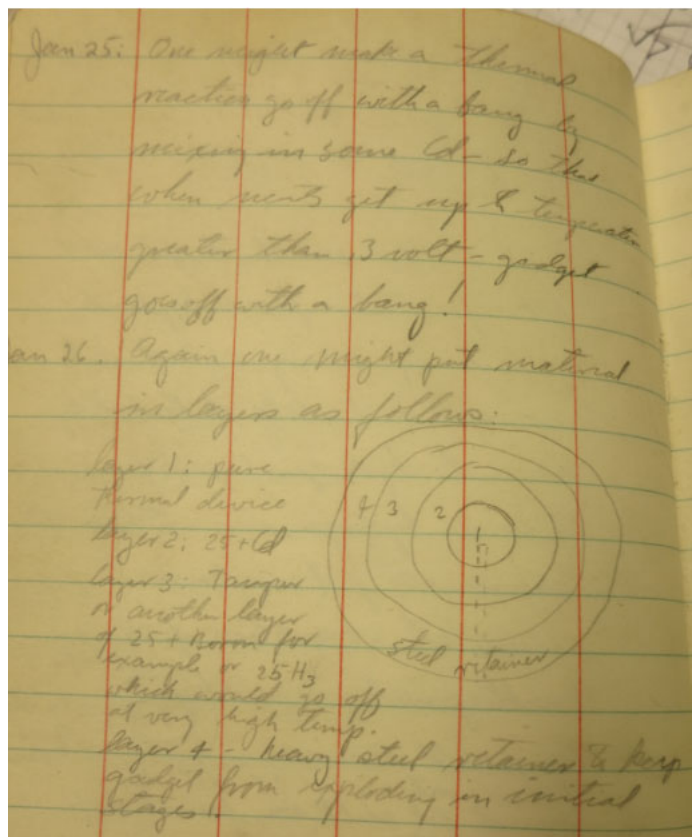 Jan 25: One might make a thermal
reaction go off with a bang by
mixing in some Cd - so that
when neuts get up to temperature
greater than .3 volt - gadget
goes off with a bang!
Jan 26. Again one might put material
in layers as follows:
layer 1: pure
thermal device
layer 2: 25+Cd
layer 3: Tamper
or another layer
of 25+Boron for
example or 25H3
which would go off
at very high temp.
layer 4 - heavy steel retainer to keep
gadget from exploding in initial
stages.
4 3 2 1
steel retainer